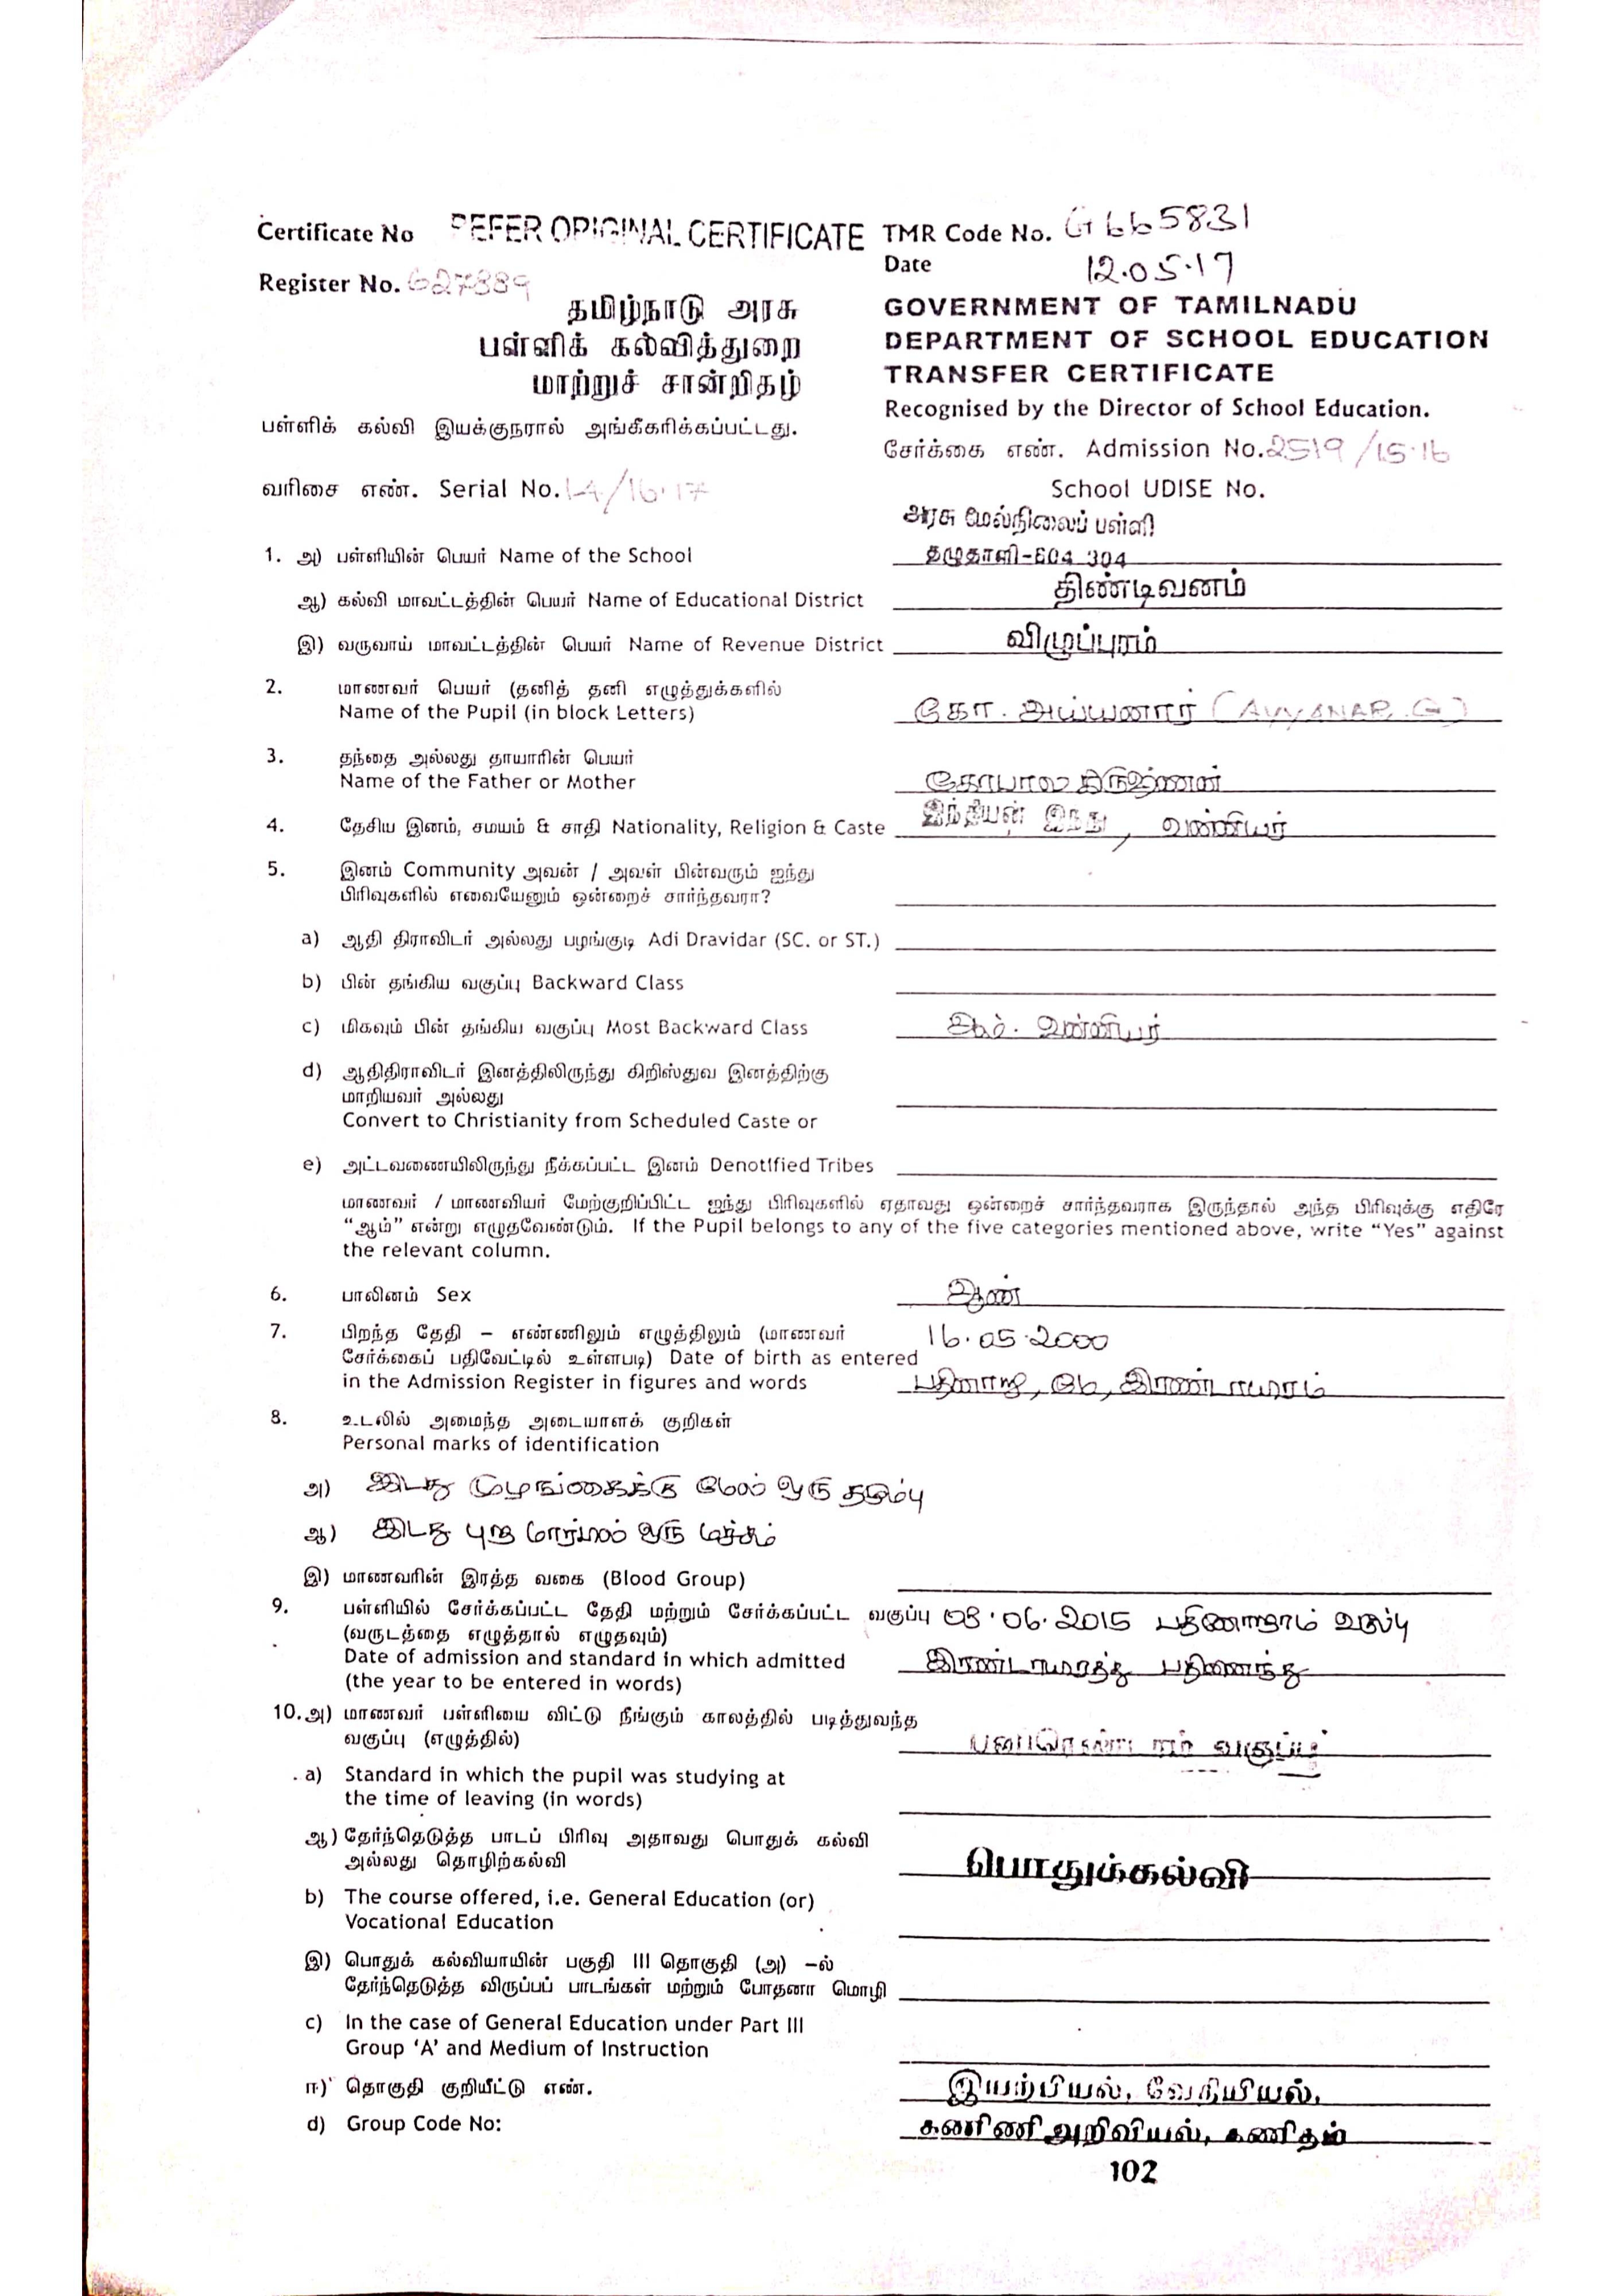 Certificate No REFER ORIGINAL CERTIFICATE TMR Code No. G665831
Date 12.05.17
Register No. 627889
தமிழ்நாடு அரசு
பள்ளிக் கல்வித்துறை
மாற்றுச் சான்றிதழ்
GOVERNMENT OF TAMILNADU
DEPARTMENT OF SCHOOL EDUCATION
TRANSFER CERTIFICATE
Recognised by the Director of School Education.
பள்ளிக் கல்வி இயக்குநரால் அங்கீகரிக்கப்பட்டது.
சேர்க்கை எண். Admission No. 2519/15-16
வரிசை எண். Serial No. 14/16-17 School UDISE No.
அரசு மேல்நிலைப் பள்ளி
1. அ) பள்ளியின் பெயர் Name of the School தழுதாளி-604 304
ஆ) கல்வி மாவட்டத்தின் பெயர் Name of Educational District திண்டிவனம்
இ) வருவாய் மாவட்டத்தின் பெயர் Name of Revenue District விழுப்புரம்
2. மாணவர் பெயர் (தனித் தனி எழுத்துக்களில்
Name of the Pupil (in block Letters) கோ. அய்யனார் (AYYANAR. G)
3. தந்தை அல்லது தாயாரின் பெயர்
Name of the Father or Mother கோபாலகிருஷ்ணன்
4. தேசிய இனம், சமயம் & சாதி Nationality, Religion & Caste இந்தியன் இந்து, வன்னியர்
5. இனம் Community அவன் / அவள் பின்வரும் ஐந்து
பிரிவுகளில் எவையேனும் ஒன்றைச் சார்ந்தவரா?
a) ஆதி திராவிடர் அல்லது பழங்குடி Adi Dravidar (SC. or ST.)
b) பின் தங்கிய வகுப்பு Backward Class
c) மிகவும் பின் தங்கிய வகுப்பு Most Backward Class ஆம். வன்னியர்
d) ஆதிதிராவிடர் இனத்திலிருந்து கிறிஸ்துவ இனத்திற்கு
மாறியவர் அல்லது
Convert to Christianity from Scheduled Caste or
e) அட்டவணையிலிருந்து நீக்கப்பட்ட இனம் Denotified Tribes
மாணவர் / மாணவியர் மேற்குறிப்பிட்ட ஐந்து பிரிவுகளில் ஏதாவது ஒன்றைச் சார்ந்தவராக இருந்தால் அந்த பிரிவுக்கு எதிரே
“ஆம்” என்று எழுதவேண்டும். If the Pupil belongs to any of the five categories mentioned above, write “Yes” against
the relevant column.
6. பாலினம் Sex ஆண்
7. பிறந்த தேதி – எண்ணிலும் எழுத்திலும் (மாணவர் 16.05.2000
சேர்க்கைப் பதிவேட்டில் உள்ளபடி) Date of birth as entered
in the Admission Register in figures and words பதினாறு, மே, இரண்டாயிரம்
8. உடலில் அமைந்த அடையாளக் குறிகள்
Personal marks of identification
அ) இடது முழங்கைக்கு மேல் ஒரு தழும்பு
ஆ) இடது புற மார்பில் ஒரு மச்சம்
இ) மாணவரின் இரத்த வகை (Blood Group)
9. பள்ளியில் சேர்க்கப்பட்ட தேதி மற்றும் சேர்க்கப்பட்ட வகுப்பு 03.06.2015 பதினோராம் வகுப்பு
(வருடத்தை எழுத்தால் எழுதவும்)
Date of admission and standard in which admitted இரண்டாயிரத்து பதினைந்து
(the year to be entered in words)
10. அ) மாணவர் பள்ளியை விட்டு நீங்கும் காலத்தில் படித்துவந்த
வகுப்பு (எழுத்தில்) பன்னிரெண்டாம் வகுப்பு
a) Standard in which the pupil was studying at
the time of leaving (in words)
ஆ) தேர்ந்தெடுத்த பாடப் பிரிவு அதாவது பொதுக் கல்வி
அல்லது தொழிற்கல்வி பொதுக்கல்வி
b) The course offered, i.e. General Education (or)
Vocational Education
இ) பொதுக் கல்வியாயின் பகுதி III தொகுதி (அ) –ல்
தேர்ந்தெடுத்த விருப்பப் பாடங்கள் மற்றும் போதனா மொழி
c) In the case of General Education under Part III
Group ‘A’ and Medium of Instruction
ஈ) தொகுதி குறியீட்டு எண். இயற்பியல், வேதியியல்,
d) Group Code No: கணினி அறிவியல், கணிதம்
102